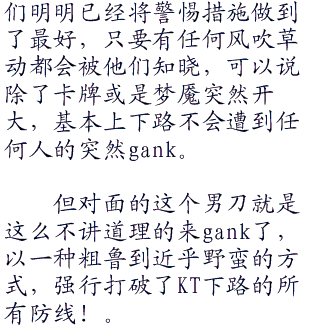 们明明已经将警惕措施做到
了最好，只要有任何风吹草
动都会被他们知晓，可以说
除了卡牌或是梦魇突然开
大，基本上下路不会遭到任
何人的突然gank。
但对面的这个男刀就是
这么不讲道理的来gank了，
以一种粗鲁到近乎野蛮的方
式，强行打破了KT下路的所
有防线！。